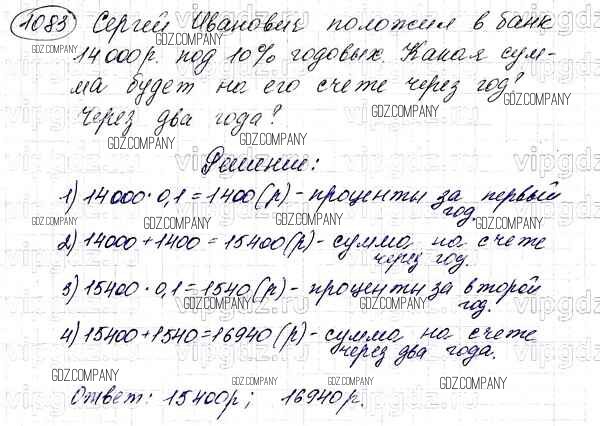 1083 Сергей Иванович положил в банк
14000р. под 10% годовых. Какая сум-
ма будет на его счете через год?
Через два года?
Решение:
1) 14000·0,1=1400(р)-проценты за первый
год.
2) 14000+1400=15400(р)-сумма на счете
через год.
3) 15400·0,1=1540(р)-проценты за второй
год.
4) 15400+1540=16940(р)-сумма на счете
через два года.
Ответ: 15400р; 16940р.
GDZ.COMPANY
vipgdz